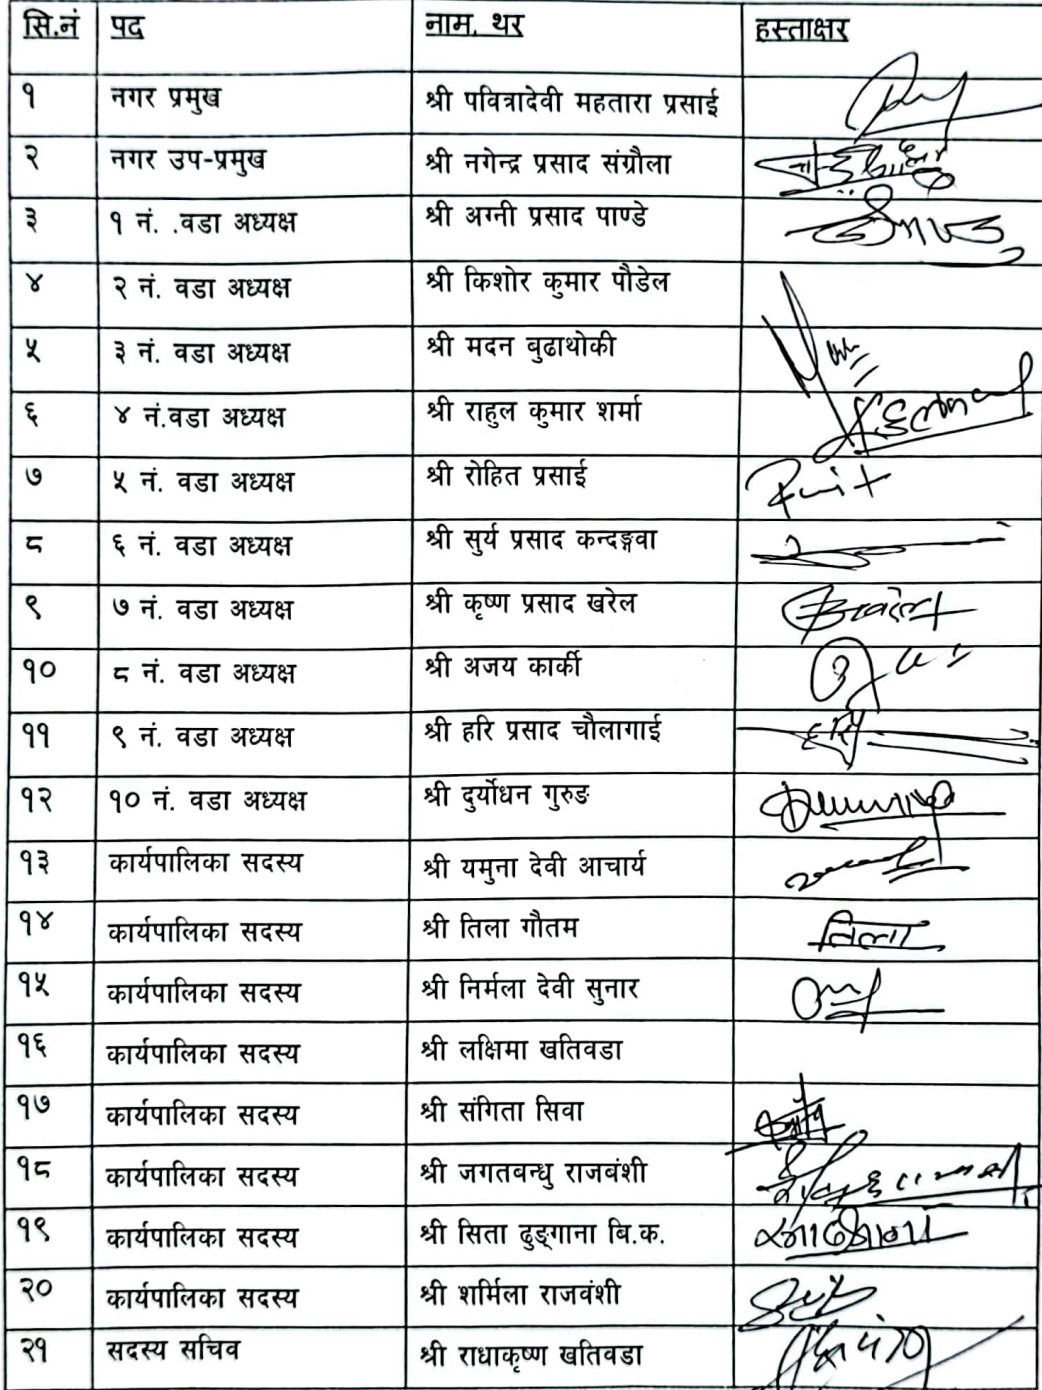 सि.नं पद नाम, थर हस्ताक्षर
१ नगर प्रमुख श्री पवित्रादेवी महतारा प्रसाई
२ नगर उप-प्रमुख श्री नगेन्द्र प्रसाद संग्रौला
३ १ नं. .वडा अध्यक्ष श्री अग्नी प्रसाद पाण्डे
४ २ नं. वडा अध्यक्ष श्री किशोर कुमार पौडेल
५ ३ नं. वडा अध्यक्ष श्री मदन बुढाथोकी
६ ४ नं.वडा अध्यक्ष श्री राहुल कुमार शर्मा
७ ५ नं. वडा अध्यक्ष श्री रोहित प्रसाई
८ ६ नं. वडा अध्यक्ष श्री सुर्य प्रसाद कन्दङ्गवा
९ ७ नं. वडा अध्यक्ष श्री कृष्ण प्रसाद खरेल
१० ८ नं. वडा अध्यक्ष श्री अजय कार्की
११ ९ नं. वडा अध्यक्ष श्री हरि प्रसाद चौलागाई हरि
१२ १० नं. वडा अध्यक्ष श्री दुर्योधन गुरुङ
१३ कार्यपालिका सदस्य श्री यमुना देवी आचार्य
१४ कार्यपालिका सदस्य श्री तिला गौतम तिला
१५ कार्यपालिका सदस्य श्री निर्मला देवी सुनार
१६ कार्यपालिका सदस्य श्री लक्षिमा खतिवडा
१७ कार्यपालिका सदस्य श्री संगिता सिवा
१८ कार्यपालिका सदस्य श्री जगतबन्धु राजबंशी
१९ कार्यपालिका सदस्य श्री सिता ढुङ्गाना बि.क.
२० कार्यपालिका सदस्य श्री शर्मिला राजवंशी
२१ सदस्य सचिव श्री राधाकृष्ण खतिवडा